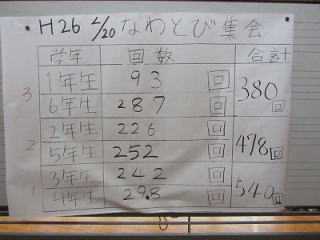 H26 2/20 なわとび集会
学年 回数 合計
1年生 93 回
6年生 287 回
3 380回
2年生 226 回
5年生 252 回
2 478回
3年生 242 回
4年生 298 回
1 540回